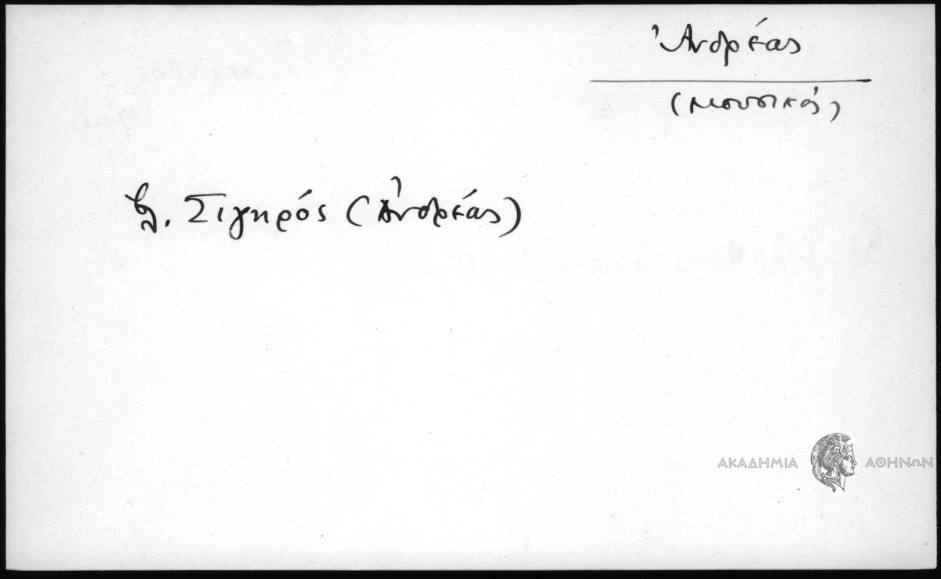 Ἀνδρέας
(μουσικός)
βλ. Σιγηρός (Ἀνδρέας)
ΑΚΑΔΗΜΙΑ ΑΘΗΝΩΝ